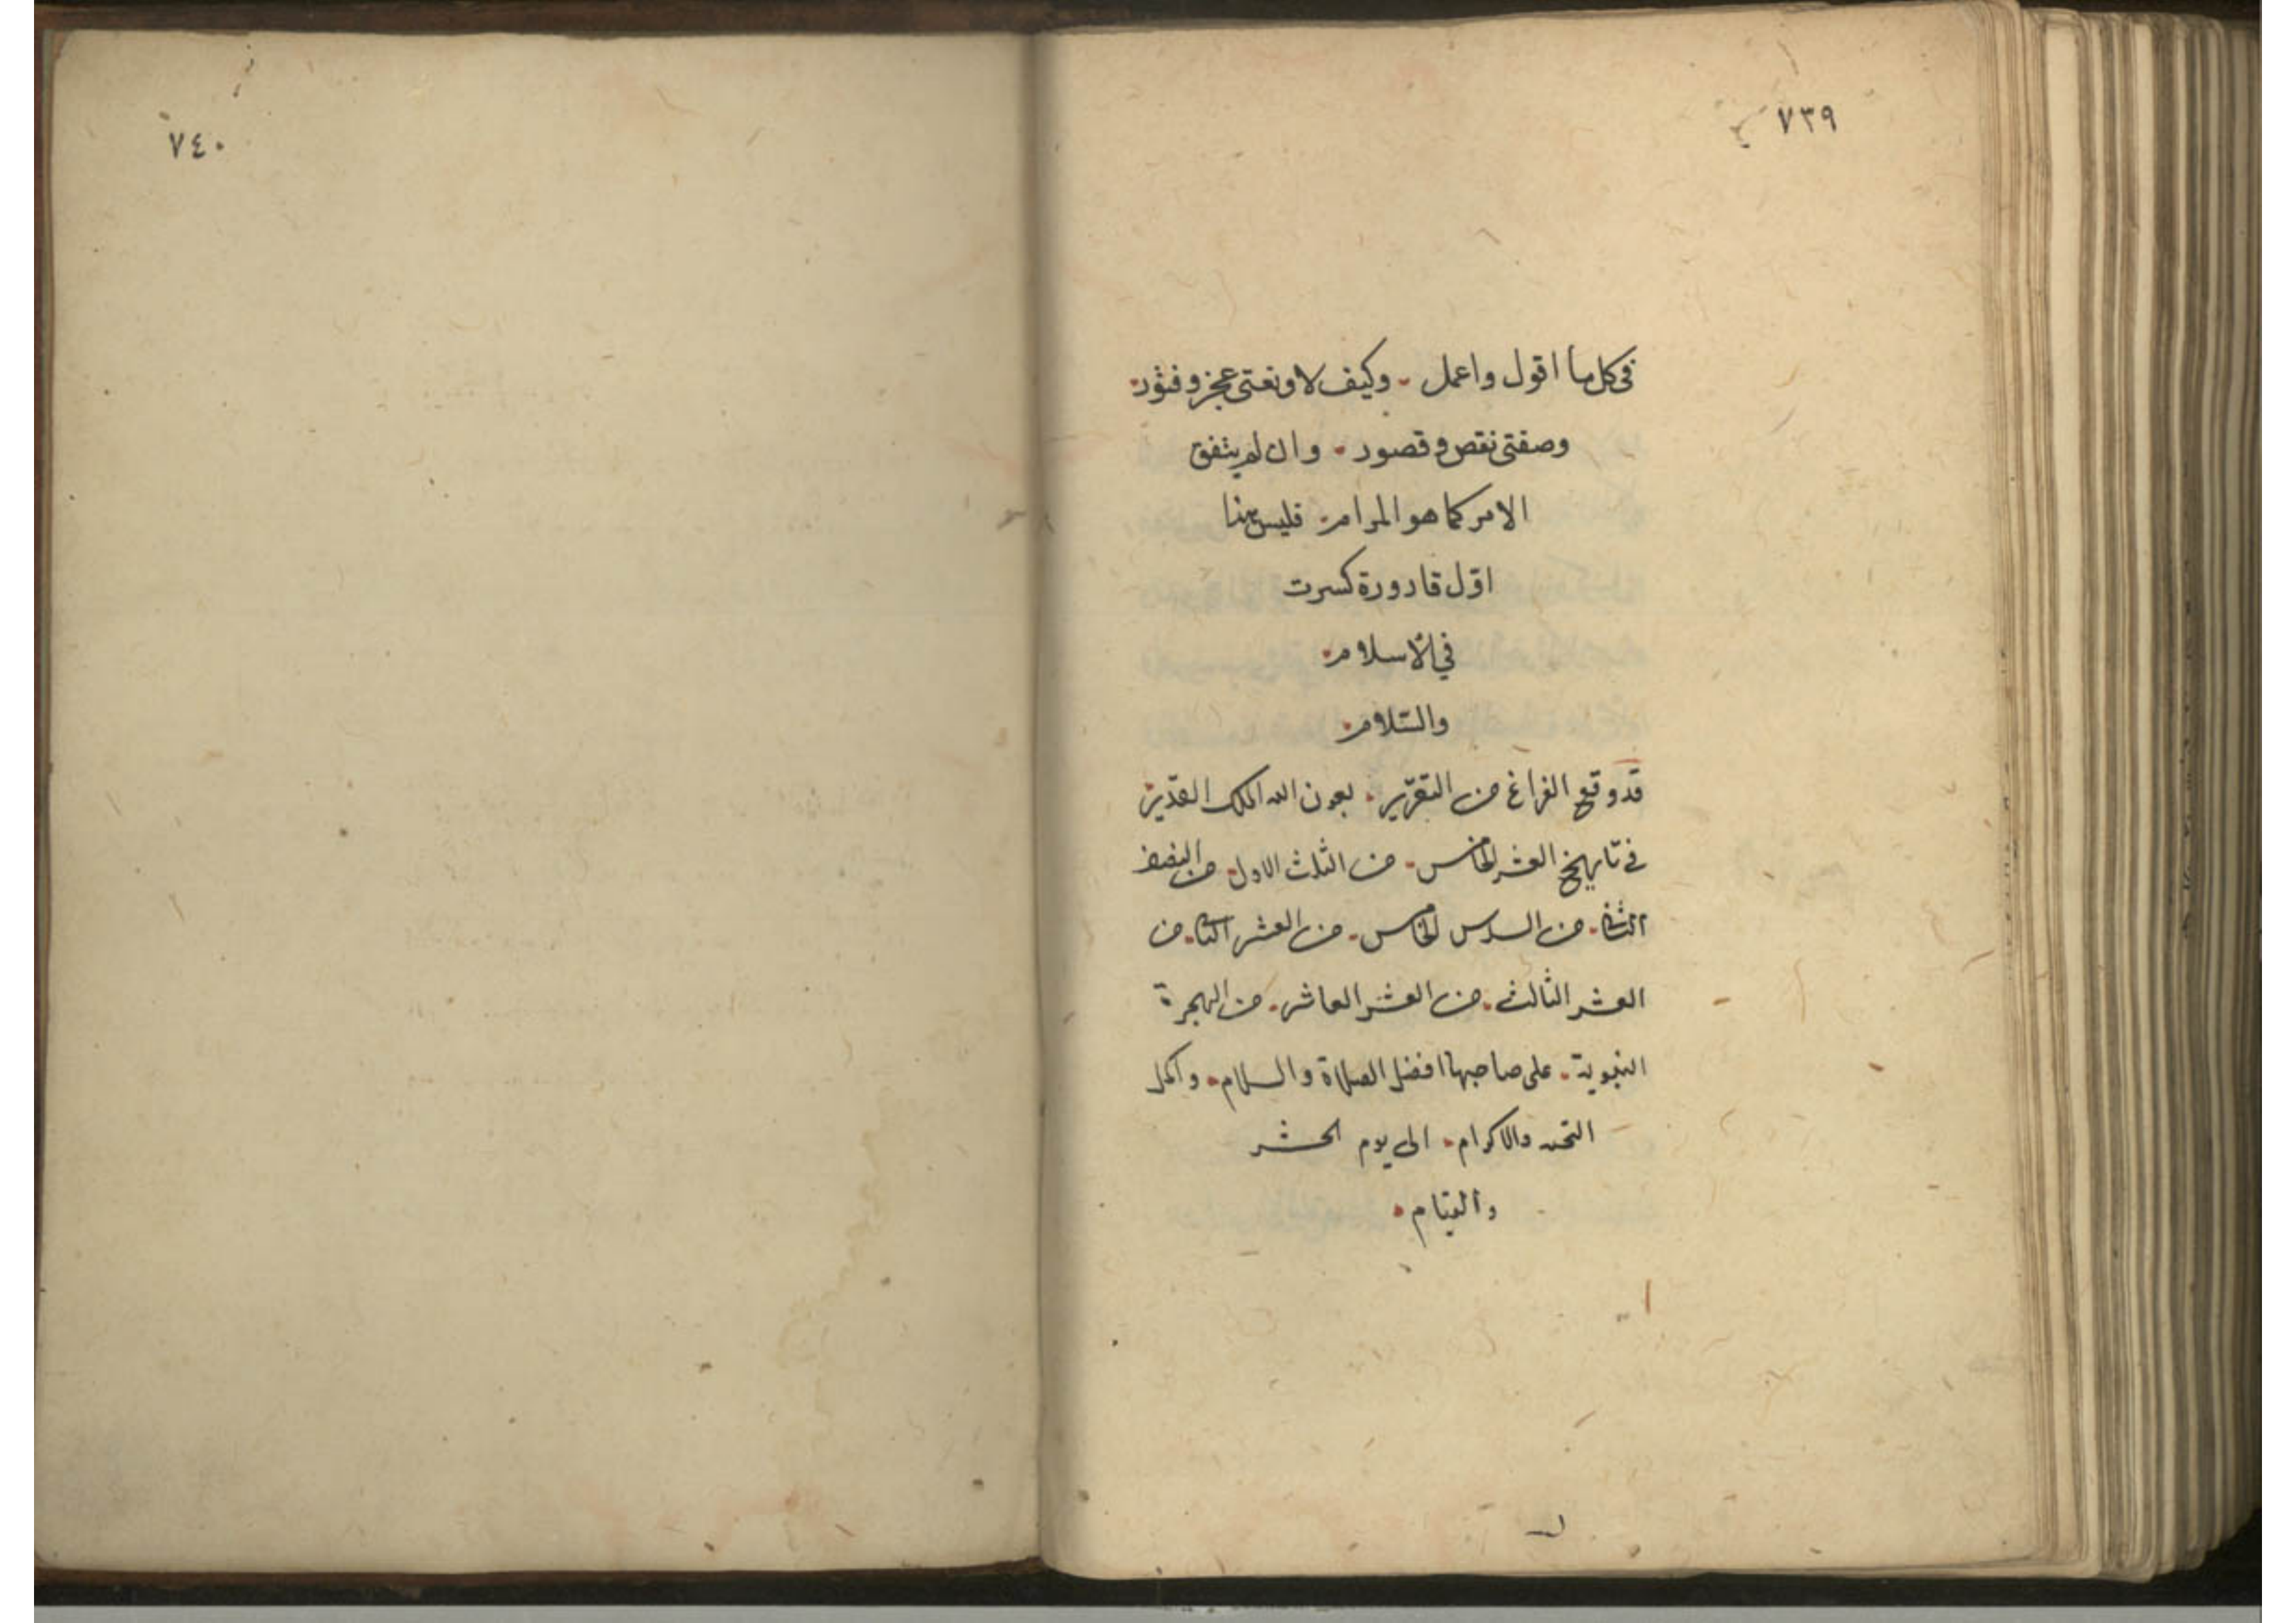 ٧٣٩
في كل ما اقول واعمل وكيف لا ونعتى عجز وفتور
وصفتى نقص وقصور وان لم يتفق
الامر كما هو المرام فليس هذا
اوّل قارورة كسرت
في الاسلام
والسّلام
قد وقع الفراغ من التقرير بعون الله الملك القدير
في تاريخ العشر الخامس من الثلث الاول من النصف
الثاني من السدس الخامس من العشر الثاني من
العشر الثالث من العشر العاشر من الهجرة
النبوية على صاحبها افضل الصلاة والسلام واكمل
التحية والاكرام الى يوم الحشر
والقيام
٧٤٠